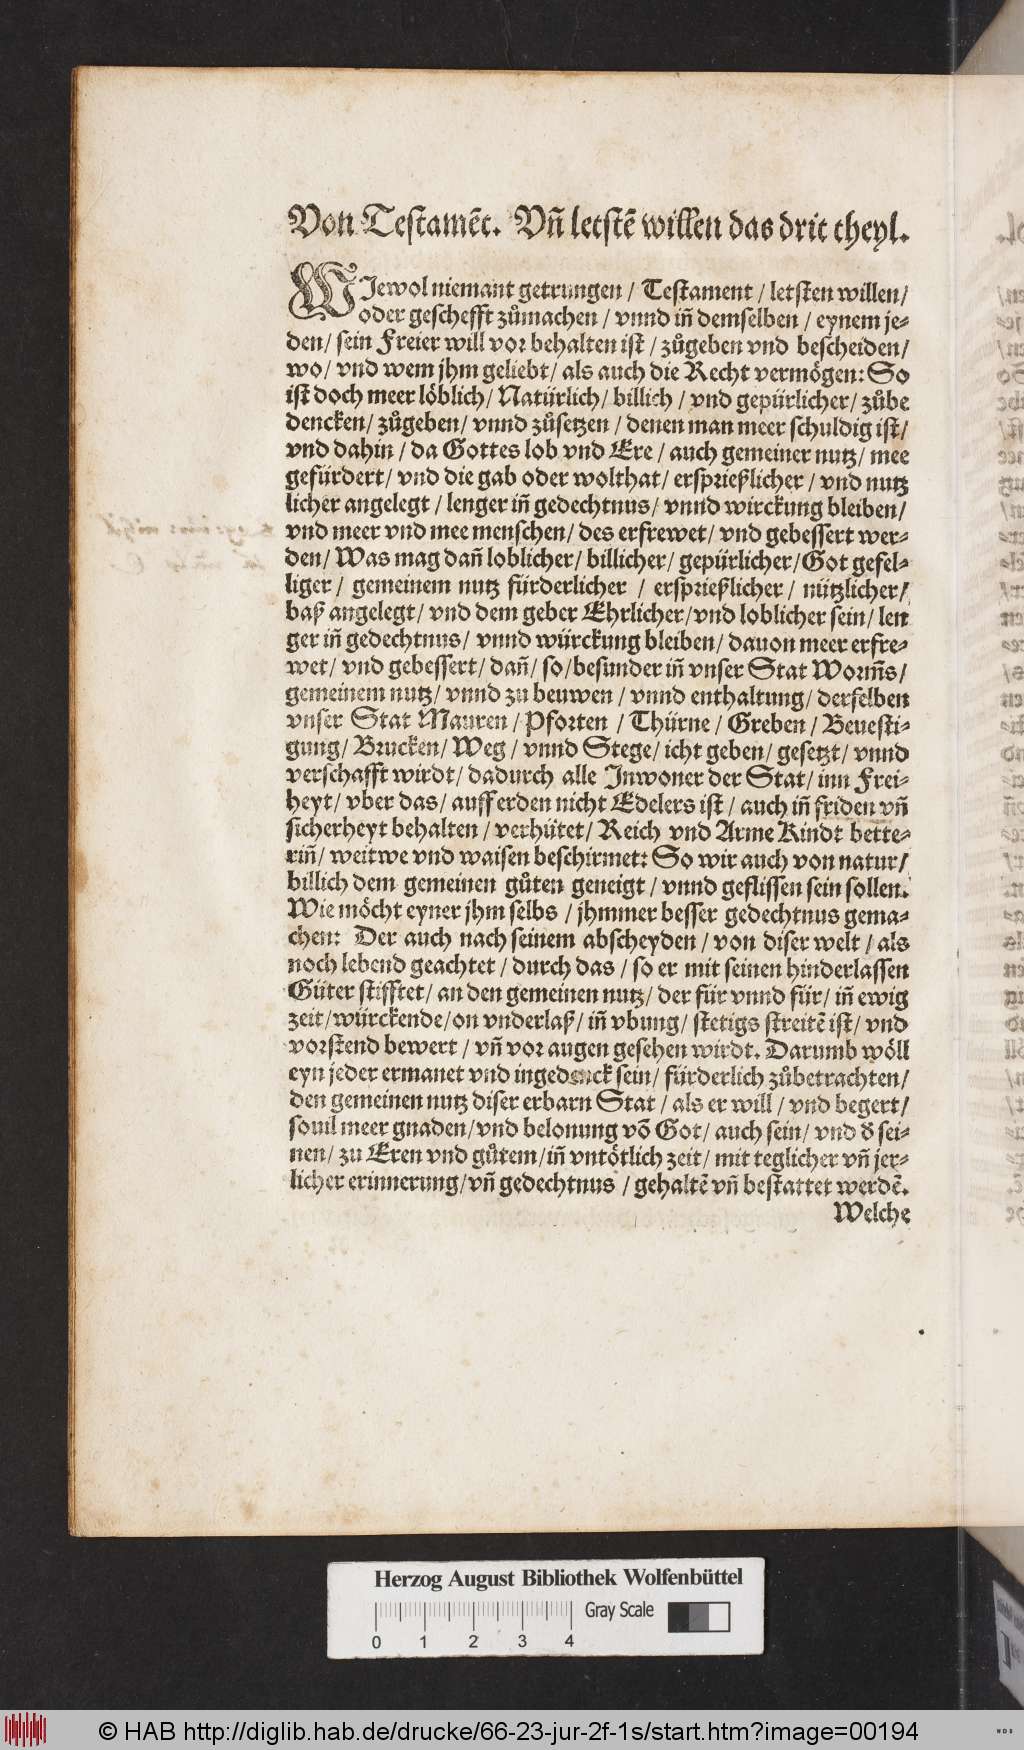 Von Testamēt. Vñ letstē willen das drit theyl.
WIewol niemant getrungen / Testament / letsten willen/
oder geschefft zůmachen / vnnd iñ demselben / eynem je-
den/ sein Freier will vor behalten ist / zůgeben vnd bescheiden/
wo/ vnd wem jhm geliebt/ als auch die Recht vermögen: So
ist doch meer löblich/ Natürlich/ billich / vnd gepürlicher/ zůbe
dencken/ zůgeben/ vnnd zůsetzen / denen man meer schuldig ist/
vnd dahin / da Gottes lob vnd Ere / auch gemeiner nutz/ mee
gefürdert/ vnd die gab oder wolthat/ ersprießlicher / vnd nutz
licher angelegt / lenger iñ gedechtnus/ vnnd wirckung bleiben/
vnd meer vnd mee menschen/ des erfrewet/ vnd gebessert wer-
den/ Was mag dañ loblicher/ billicher/ gepürlicher/ Got gefel-
liger/ gemeinem nutz fürderlicher / ersprießlicher / nützlicher/
baß angelegt/ vnd dem geber Ehrlicher/vnd loblicher sein/ len
ger iñ gedechtnus/ vnnd würckung bleiben/ dauon meer erfre-
wet/ vnd gebessert/ dañ/ so/besunder iñ vnser Stat Worm̃s/
gemeinem nutz/ vnnd zu beuwen / vnnd enthaltung/ derselben
vnser Stat Mauren / Pforten / Thürne / Greben / Beuesti-
gung/ Brucken/ Weg / vnnd Stege/ icht geben/ gesetzt/ vnnd
verschafft wirdt/ dadurch alle Inwoner der Stat/ inn Frei-
heyt/ vber das/ auff erden nicht Edelers ist / auch iñ friden vñ
sicherheyt behalten / verhütet/ Reich vnd Arme Kindt bette-
riñ/ weitwe vnd waisen beschirmet: So wir auch von natur/
billich dem gemeinen gůten geneigt / vnnd geflissen sein sollen.
Wie möcht eyner jhm selbs / jhmmer besser gedechtnus gema-
chen: Der auch nach seinem abscheyden / von diser welt / als
noch lebend geachtet / durch das / so er mit seinen hinderlassen
Güter stifftet/ an den gemeinen nutz/ der für vnnd für/ iñ ewig
zeit/würckende/on vnderlaß/ iñ vbung/ stetigs streitē ist/ vnd
vorstend bewert / vñ vor augen gesehen wirdt. Darumb wöll
eyn jeder ermanet vnd ingedenck sein/ fürderlich zůbetrachten/
den gemeinen nutz diser erbarn Stat / als er will / vnd begert/
souil meer gnaden/vnd belonung võ Got/ auch sein/ vnd d̃ sei-
nen/ zu Eren vnd gůtem/iñ vntötlich zeit/ mit teglicher vñ jer-
licher erinnerung/vñ gedechtnus / gehaltē vñ bestattet werdē.
Welche
Herzog August Bibliothek Wolfenbüttel
Gray Scale
0 1 2 3 4
© HAB http://diglib.hab.de/drucke/66-23-jur-2f-1s/start.htm?image=00194